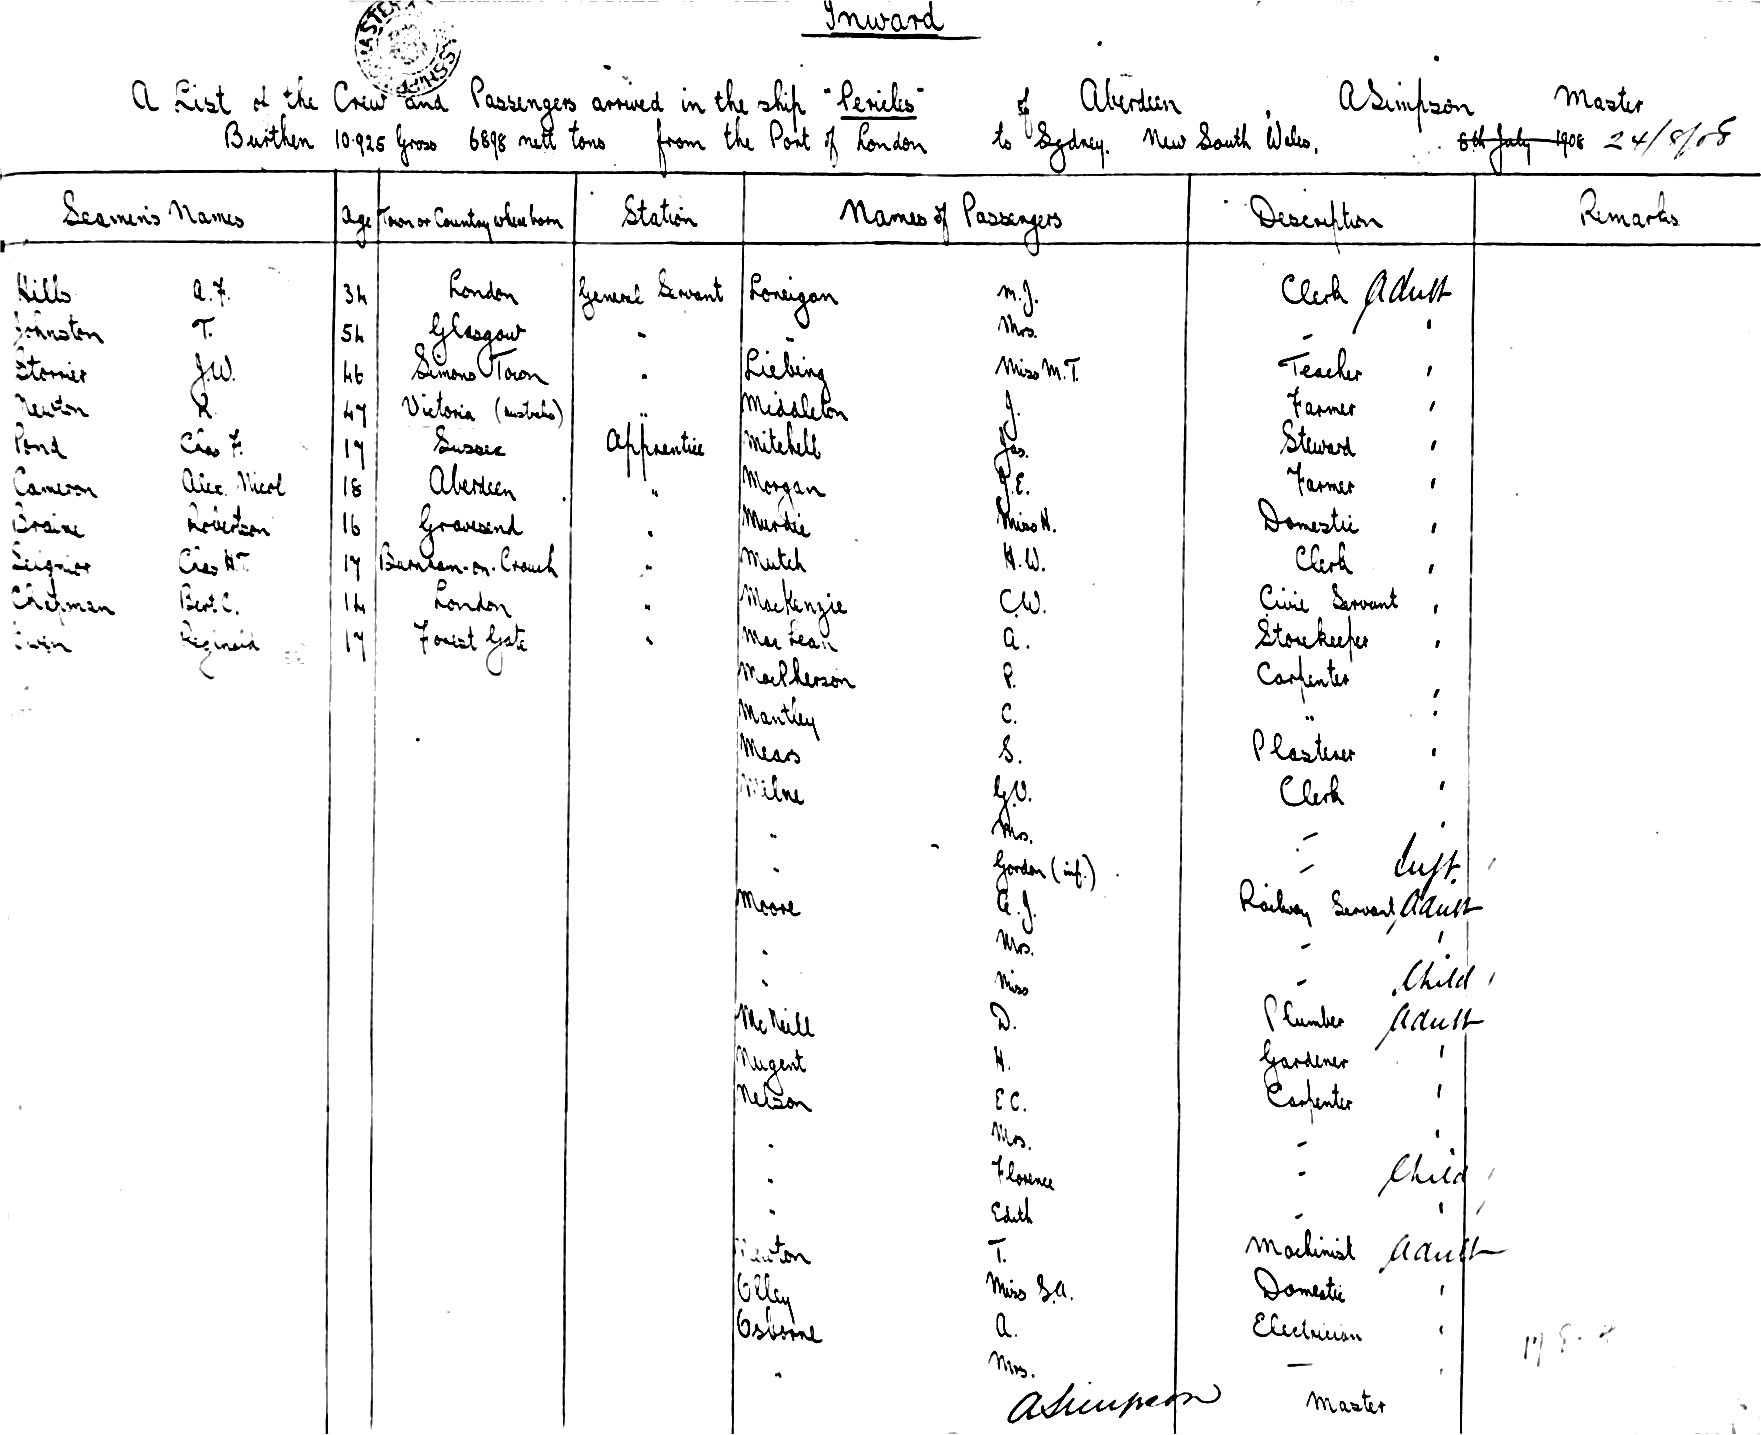 Inward
A List of the Crew and Passengers arrived in the ship "Pericles" of Aberdeen, A Simpson Master
Burthen 10.925 Gross 6898 nett tons from the Port of London to Sydney. New South Wales, 8th July 1908 24/8/08
Seamen's Names Age Town or Country where born Station Names of Passengers Description Remarks
Hills A.F. 34 London General Servant Loneigan M.J. Clerk Adult
Johnston T. 54 Glasgow " " Mrs. – "
Stormer J.W. 46 Simons Town " Liebing Miss M.T. Teacher "
Newton R. 47 Victoria (Australia) " Middleton J. Farmer "
Pond Chas F. 17 Sussex Apprentice Mitchell Jas. Steward "
Cameron Alex. Nicol 18 Aberdeen " Morgan P.E. Farmer "
Braine Robertson 16 Gravesend " Murdie Miss H. Domestic "
Seignior Chas H.T. 17 Burnham-on-Crouch " Mutch H.W. Clerk "
Chapman Bert. C. 14 London " MacKenzie C.W. Civil Servant "
Owen Reginald 17 Forest Gate " MacLean A. Storekeeper "
MacPherson P. Carpenter "
Mantley C. " "
Mears S. Plasterer "
Milne G.V. Clerk "
" Mrs. – "
" Gordon (inf.) – Inft.
Moore A.J. Railway Servant Adult
" Mrs. – "
" Miss – Child
McNeill D. Plumber Adult
Nugent H. Gardener "
Nelson E.C. Carpenter "
" Mrs. – "
" Florence – Child
" Edith – "
Newton T. Machinist Adult
Olley Miss S.A. Domestic "
Osborne A. Electrician "
" Mrs. — "
A Simpson Master